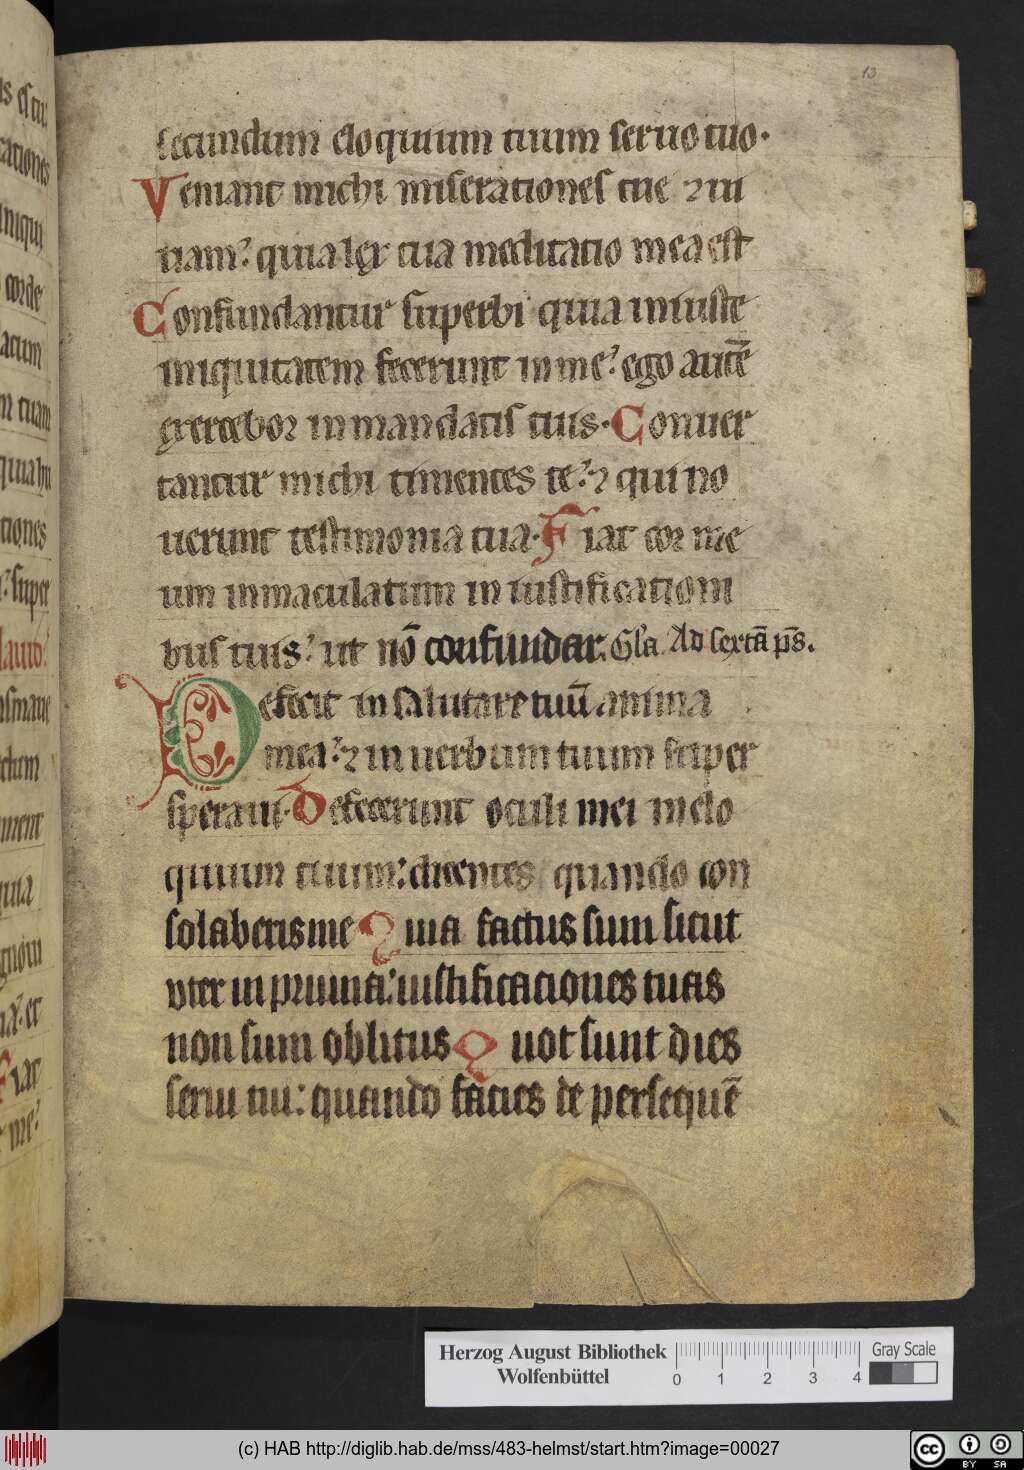 13
secundum eloquium tuum seruo tuo·
Veniant michi miserationes tue ⁊ ui
uam: quia lex tua meditatio mea est
Confundantur superbi quia iniuste
iniquitatem fecerunt in me: ego autē
exercebor in mandatis tuis· Conuer
tantur michi timentes te: ⁊ qui no
uerunt testimonia tua· Fiat cor me
um inmaculatum in iustificationi
bus tuis: ut nō confundar. Gl'a. Ad sextā ps̄.
Defecit in salutare tuū anima
mea: ⁊ in uerbum tuum super
speraui· Defecerunt oculi mei in elo
quium tuum: dicentes quando con
solaberis me Quia factus sum sicut
vter in pruina: iustificaciones tuas
non sum oblitus Quot sunt dies
serui tui: quando facies de persequē
Herzog August Bibliothek
Wolfenbüttel
0 1 2 3 4
Gray Scale
(c) HAB http://diglib.hab.de/mss/483-helmst/start.htm?image=00027
cc BY SA